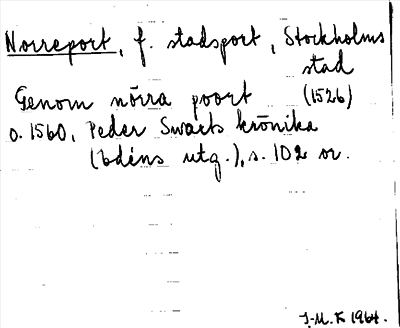 Norreport, f. stadsport, Stockholms
stad
Genom nörra poort (1526)
o. 1560, Peder Swarts krönika
(Edéns utg.), s. 102 or.
J-M. K 1964.